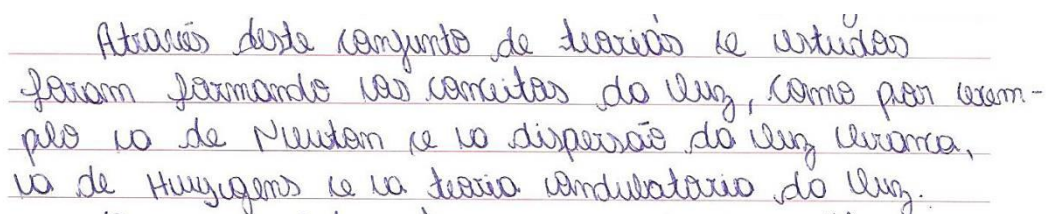 Através deste conjunto de teorias e estudos
foram formando os conceitos da luz, como por exem-
plo o de Newton e a dispersão da luz branca,
o de Huygens e a teoria ondulatoria da luz.